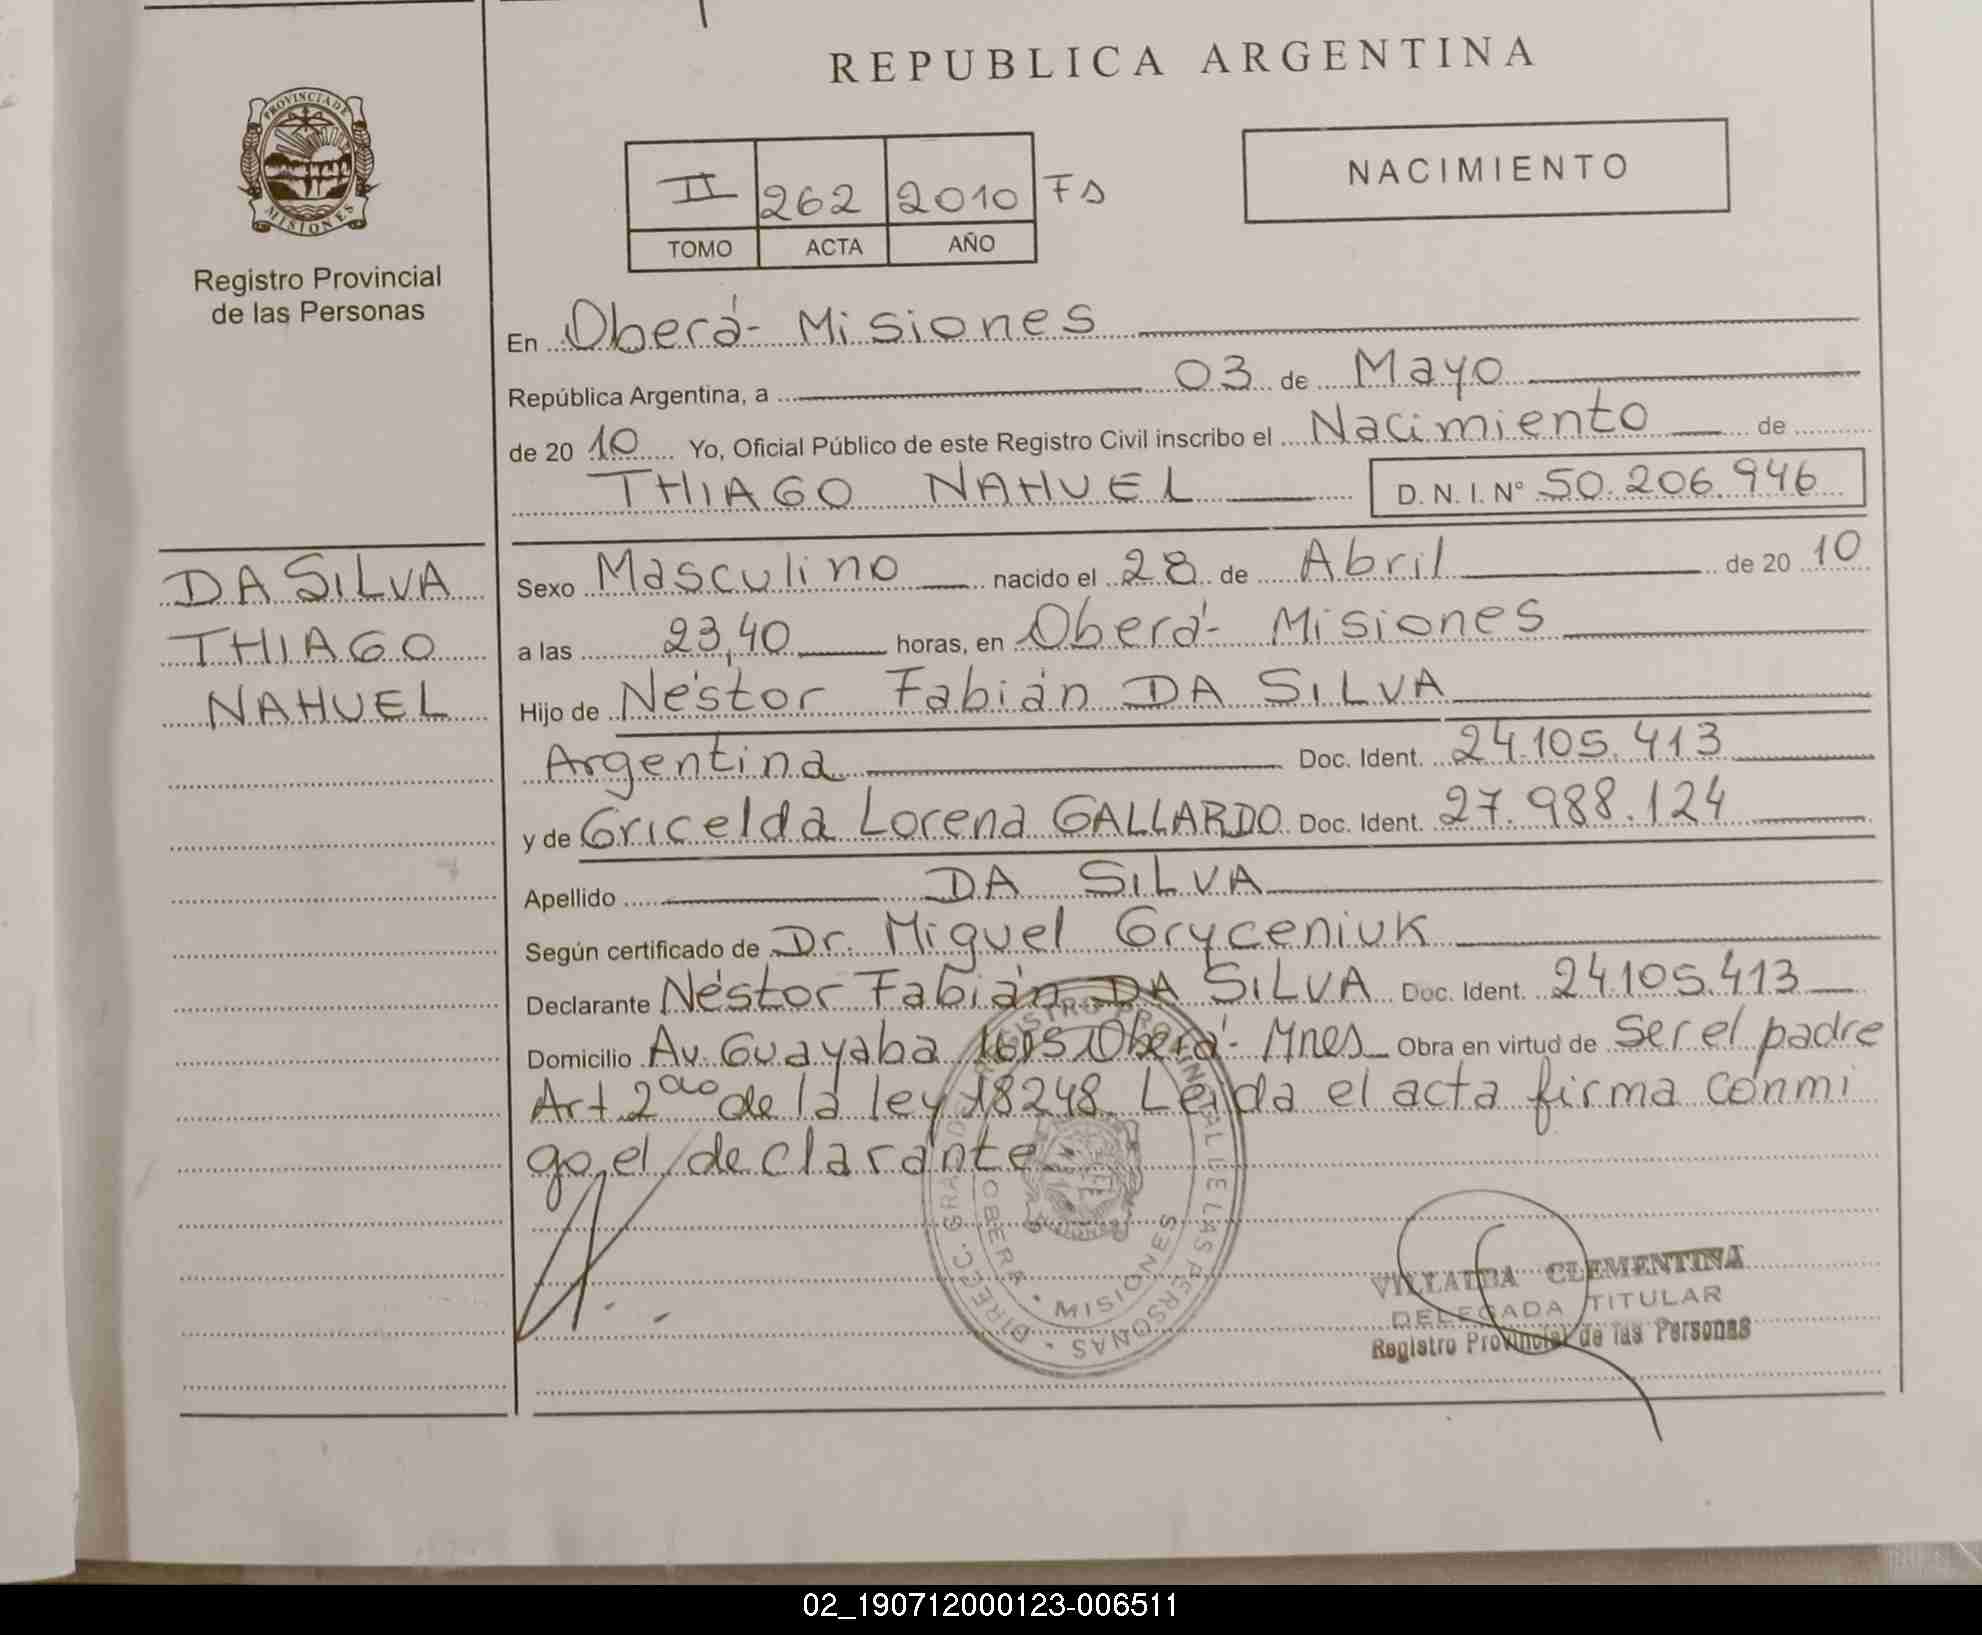 REPUBLICA ARGENTINA
PROVINCIA DE
MISIONES
Registro Provincial
de las Personas
II 262 2010 Fs
TOMO ACTA AÑO
NACIMIENTO
En Oberá- Misiones
República Argentina, a 03 de Mayo
de 20 10 Yo, Oficial Público de este Registro Civil inscribo el Nacimiento de
THIAGO NAHUEL D.N.I.Nº 50.206.946
DA SILVA
THIAGO
NAHUEL
Sexo Masculino nacido el 28 de Abril de 20 10
a las 23,40 horas, en Oberá- Misiones
Hijo de Néstor Fabián DA SILVA
Argentina Doc. Ident. 24.105.413
y de Gricelda Lorena GALLARDO Doc. Ident. 27.988.124
Apellido DA SILVA
Según certificado de Dr. Miguel Gryceniuk
Declarante Néstor Fabián DA SILVA Doc. Ident. 24.105.413
Domicilio Av. Guayaba Oberá- Mnes Obra en virtud de Ser el padre
Art 2do de la ley 18248. Leída el acta firma conmi
go, el declarante
DIRECC. GRAL. DE REGISTRO PROVINCIAL DE LAS PERSONAS
OBERA • MISIONES
VILLALBA CLEMENTINA
DELEGADA TITULAR
Registro Provincial de las Personas
02_190712000123-006511